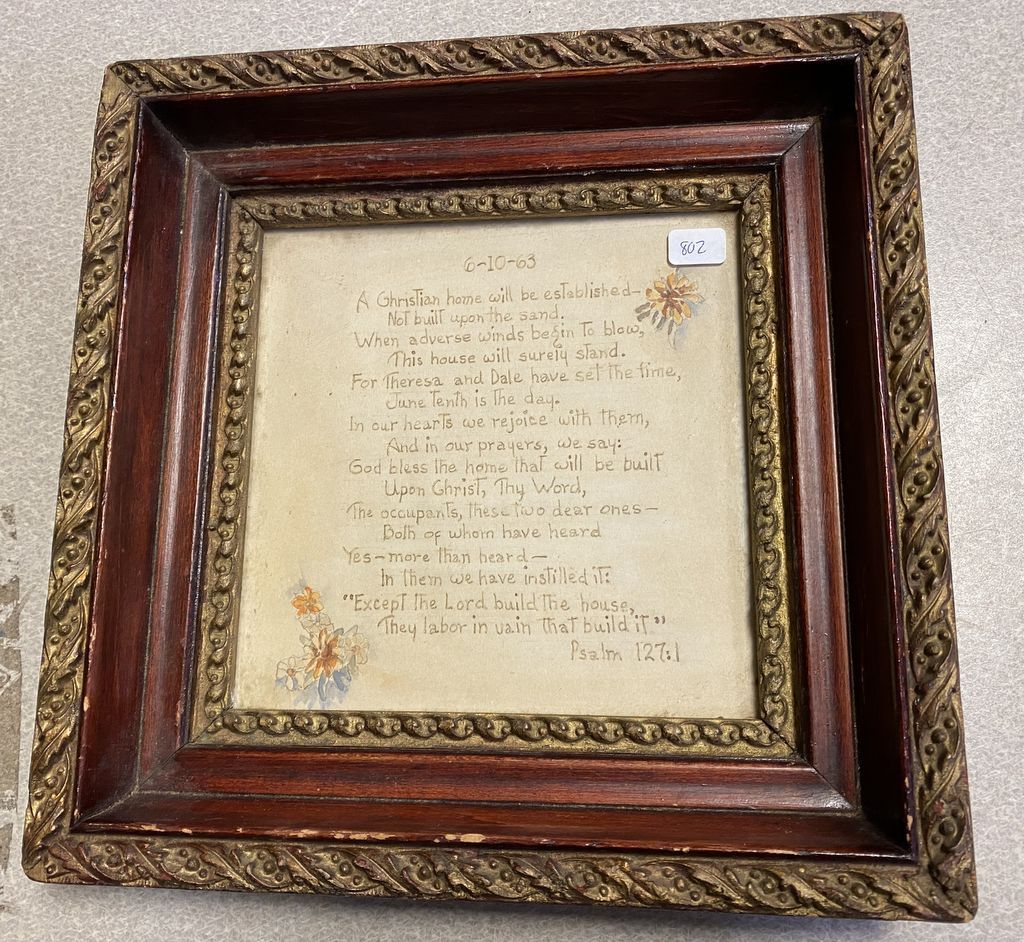 802
6-10-63
A Christian home will be established—
Not built upon the sand.
When adverse winds begin to blow,
This house will surely stand.
For Theresa and Dale have set the time,
June tenth is the day.
In our hearts we rejoice with them,
And in our prayers, we say:
God bless the home that will be built
Upon Christ, Thy Word,
The occupants, these two dear ones—
Both of whom have heard
Yes—more than heard—
In them we have instilled it:
"Except the Lord build the house,
They labor in vain that build it."
Psalm 127:1